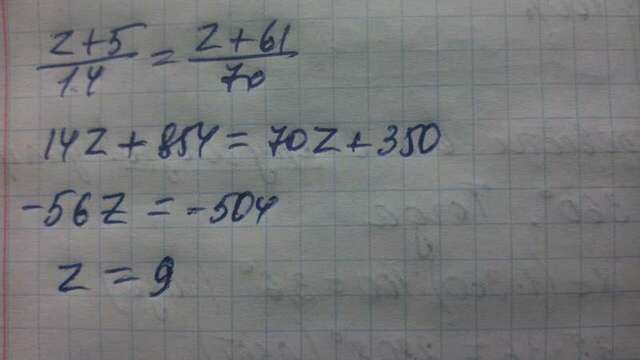 z+5/14 = z+61/70
14z+854=70z+350
-56z=-504
z=9